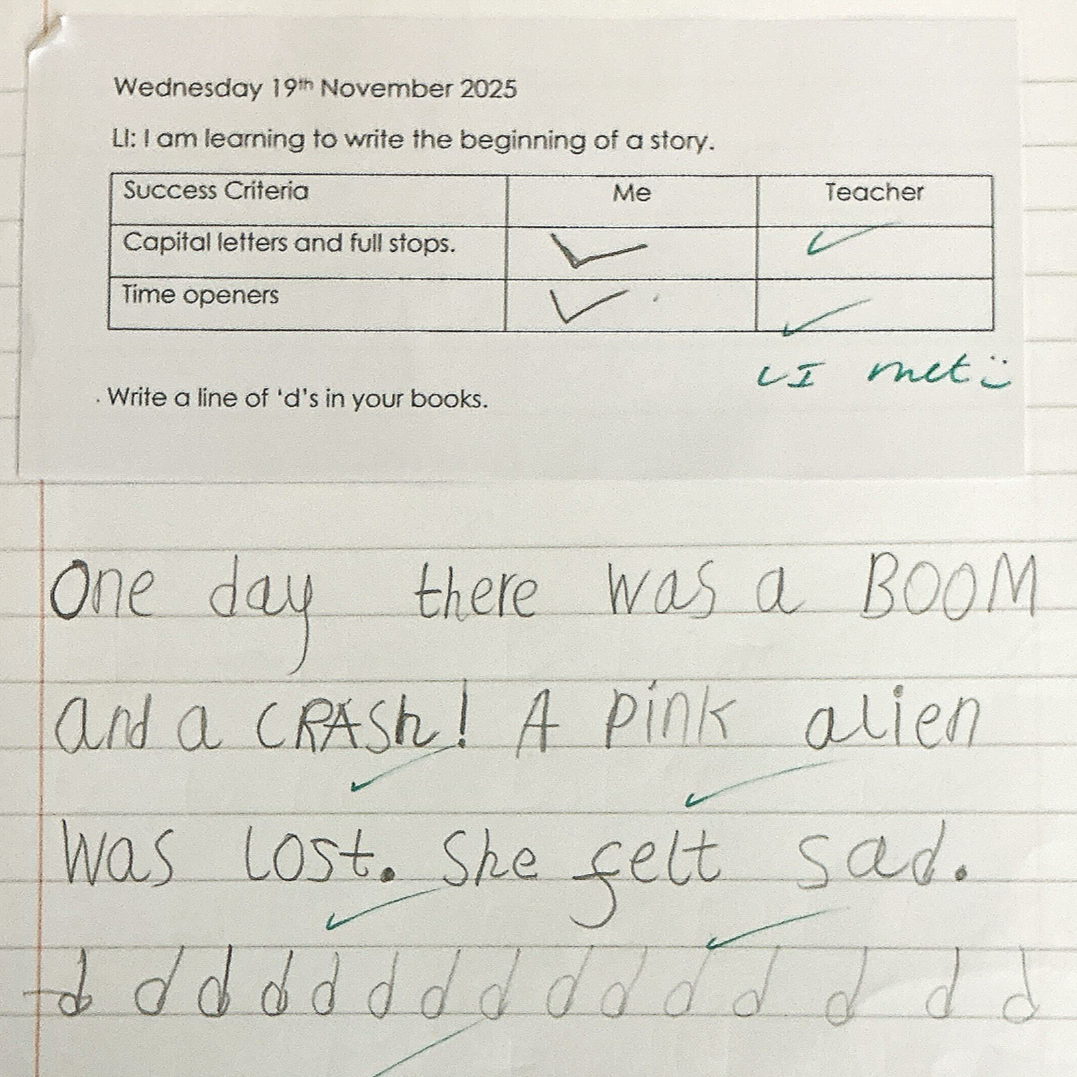 Wednesday 19th November 2025
LI: I am learning to write the beginning of a story.
Success Criteria Me Teacher
Capital letters and full stops.
Time openers
LI met
Write a line of 'd's in your books.
One day there was a BOOM
and a CRASh! A pink alien
was lost. She felt sad.
d d d d d d d d d d d d d d d